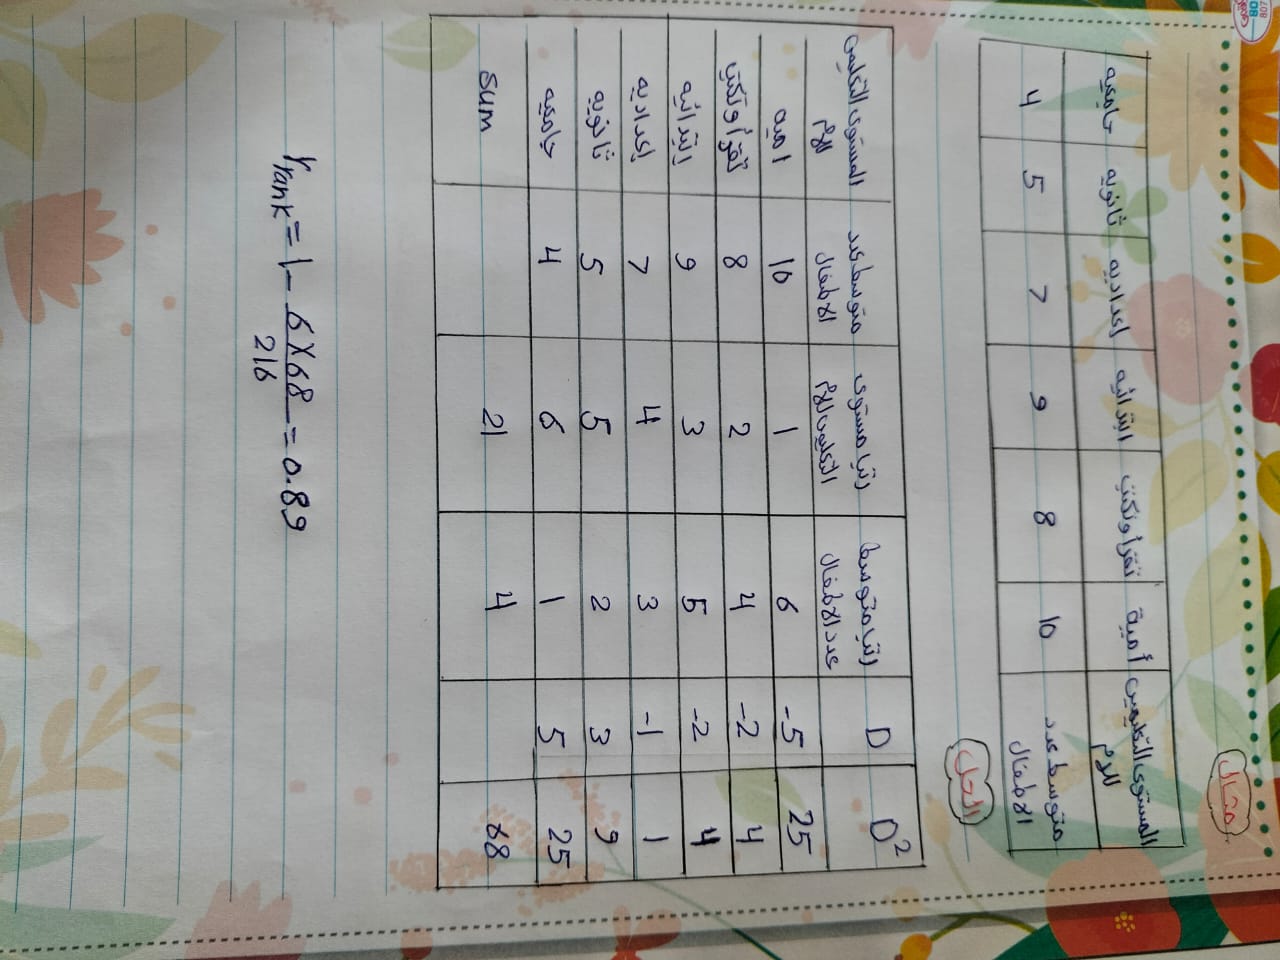 مثال
المستوى التعليمى للام	أمية	تقرأ وتكتب	ابتدائيه	إعداديه	ثانويه	جامعيه
متوسط عدد الاطفال	10	8	9	7	5	4
الحل
المستوى التعليمى للام	متوسط عدد الاطفال	رتب مستوى التعليم للام	رتب متوسط عدد الاطفال	D	D²
اميه	10	1	6	-5	25
تقرأ وتكتب	8	2	4	-2	4
ابتدائيه	9	3	5	-2	4
إعداديه	7	4	3	-1	1
ثانويه	5	5	2	3	9
جامعيه	4	6	1	5	25
Sum	21	4	68
r rank = 1 - 6×68/216 = 0.89